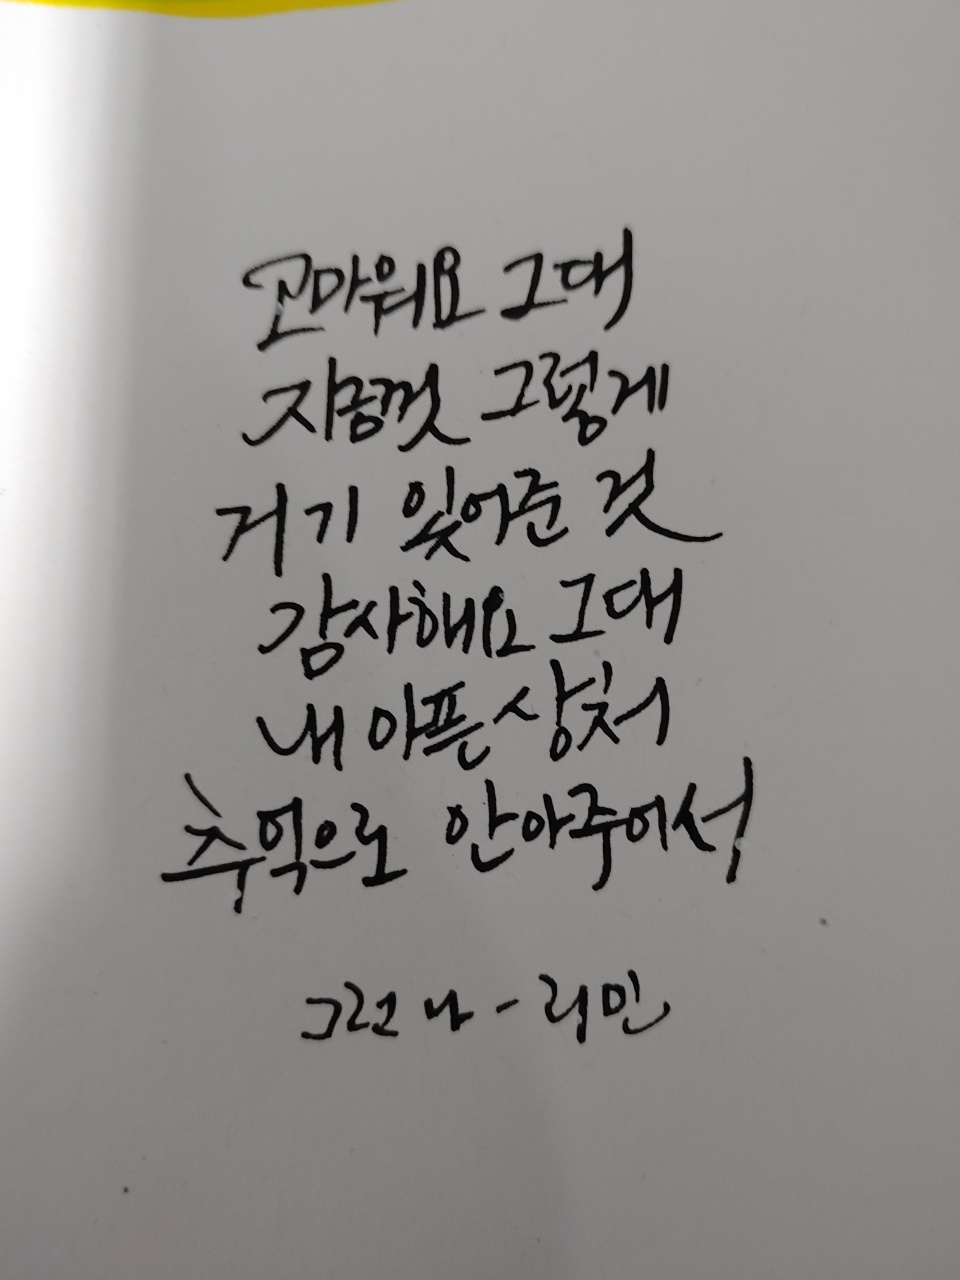 고마워요 그대
지금껏 그렇게
거기 있어준 것
감사해요 그대
내 아픈 상처
추억으로 안아주어서
그런 나 - 리민